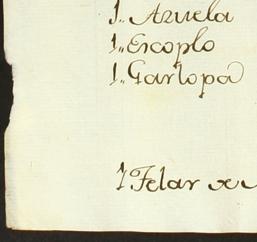 1,, Azuela
1,, Escoplo
1,, Garlopa
1 Felar